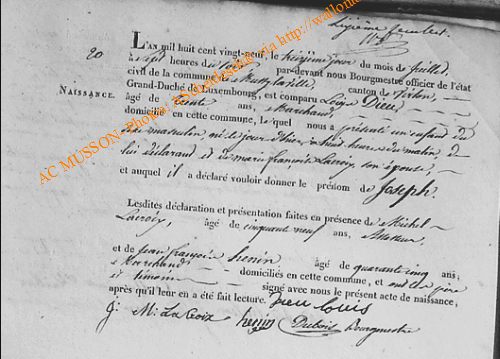 Sixième feuillet
20
NAISSANCE.
L'AN mil huit cent vingt-neuf, le treizième jour du mois de juillet,
à sept heures du soir par-devant nous Bourgmestre officier de l'état
civil de la commune de Mussy-la-ville, canton de Virton,
Grand-Duché de Luxembourg, est comparu Louis Dieu,
âgé de trente ans, Marchand,
domicilié en cette commune, lequel nous a présenté un enfant du
sexe masculin, né le jour d'hier à huit heures du matin, de
lui déclarant et de marie françoise Lacroix, son épouse,
et auquel il a déclaré vouloir donner le prénom de Joseph.
Lesdites déclaration et présentation faites en présence de Michel
Lacroix, âgé de cinquante neuf ans,
et de jean françois henin âgé de quarante cinq ans,
Marchand domiciliés en cette commune, et ont les père
et témoins signé avec nous le présent acte de naissance,
après qu'il leur en a été fait lecture. Dieu Louis
j: M: La Croix henin Dubois Bourgmestre
AC MUSSON- Photo
via http://wallonie